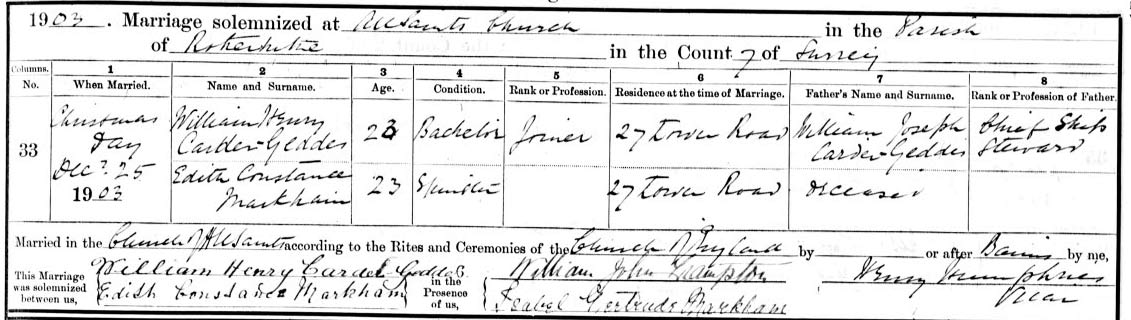 1903. Marriage solemnized at All Saints Church in the Parish
of Rotherhithe in the County of Surrey
Columns. 1 2 3 4 5 6 7 8
No. When Married. Name and Surname. Age. Condition. Rank or Profession. Residence at the time of Marriage. Father's Name and Surname. Rank or Profession of Father.
33 Christmas Day Decr. 25 1903
William Henry Carder-Geddes 23 Bachelor Joiner 27 Tower Road William Joseph Carder-Geddes Chief Ships Steward
Edith Constance Markham 23 Spinster 27 Tower Road deceased
Married in the Church of All Saints according to the Rites and Ceremonies of the Church of England by or after Banns by me,
This Marriage was solemnized between us, William Henry Carder Geddes in the Presence of us, William John Henry Vicar
Edith Constance Markham Isabel Gertrude Markham